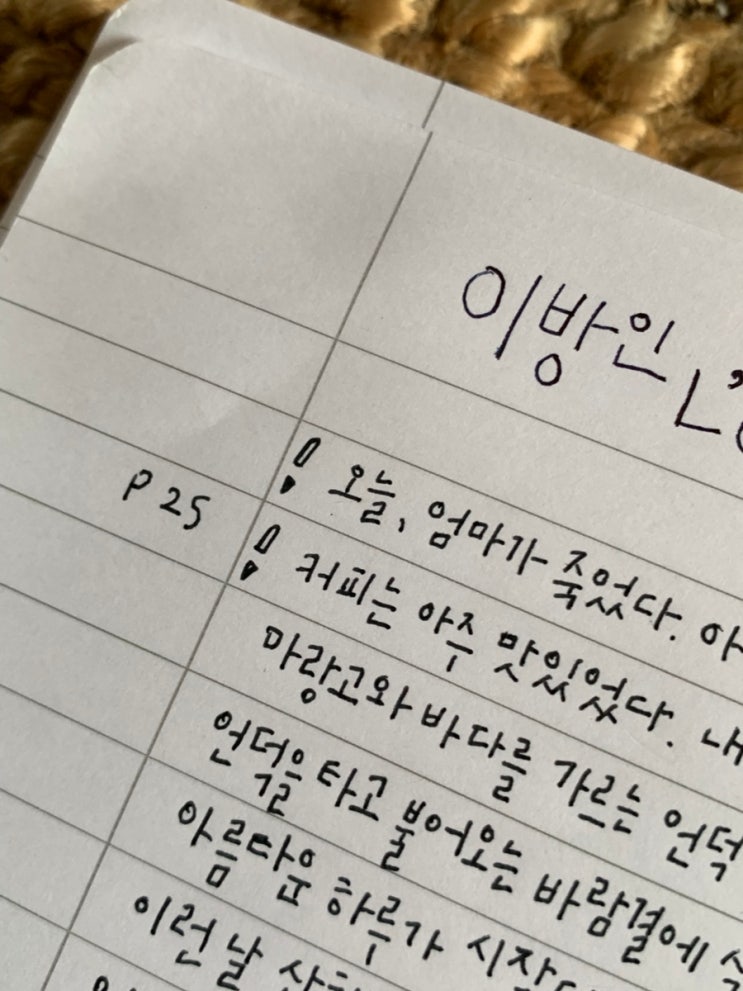 이방인
! 오늘, 엄마가 죽었다. 아
P 25 ! 커피는 아주 맛있었다. 내
마랑고와 바다를 가르는 언덕
언덕을 타고 불어오는 바람결에
아름다운 하루가 시작
이런 날